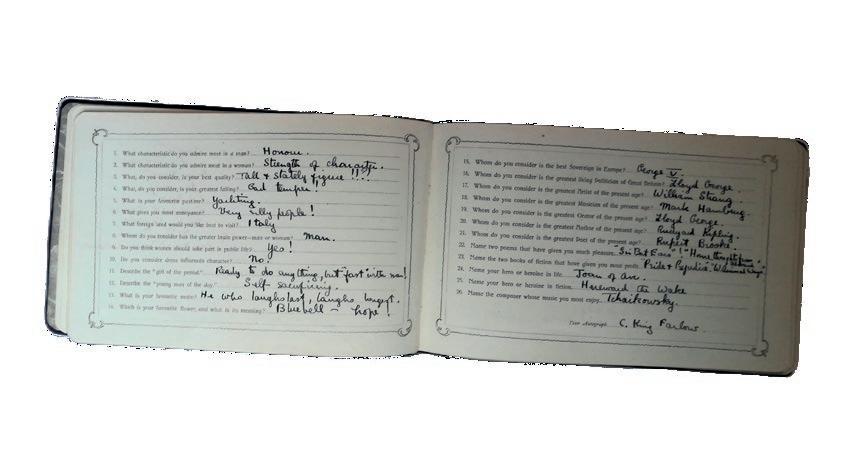 1. What characteristic do you admire most in a man? Honour.
2. What characteristic do you admire most in a woman? Strength of character.
3. What, do you consider, is your best quality? Tall & Stately figure !!!!
4. What, do you consider, is your greatest failing? Bad temper!
5. What is your favourite pastime? Yachting.
6. What gives you most annoyance? Very silly people!
7. What foreign land would you like best to visit? Italy
8. Whom do you consider has the greater brain power—man or woman? man.
9. Do you think women should take part in public life? Yes!
10. Do you consider dress influences character? No.
11. Describe the "girl of the period." Ready to do anything, but fast with
12. Describe the "young man of the day." Self sacrificing.
13. What is your favourite motto? He who laughs last, laughs longest.
14. Which is your favourite flower, and what is its meaning? Bluebell - hope!
15. Whom do you consider is the best Sovereign in Europe? George V.
16. Whom do you consider is the greatest living Politician of Great Britain? Lloyd George.
17. Whom do you consider is the greatest Artist of the present age? William Strang.
18. Whom do you consider is the greatest Musician of the present age? Mark Hambourg.
19. Whom do you consider is the greatest Orator of the present age? Lloyd George.
20. Whom do you consider is the greatest Author of the present age? Rudyard Kipling.
21. Whom do you consider is the greatest Poet of the present age? Rupert Brooke.
22. Name two poems that have given you much pleasure. "Home
23. Name the two books of fiction that have given you most profit. Pride & Prejudice.
24. Name your hero or heroine in life. Joan of arc.
25. Name your hero or heroine in fiction. Hereward the Wake
26. Name the composer whose music you most enjoy. Tchaikowsky.
Your Autograph C. King Farlow.